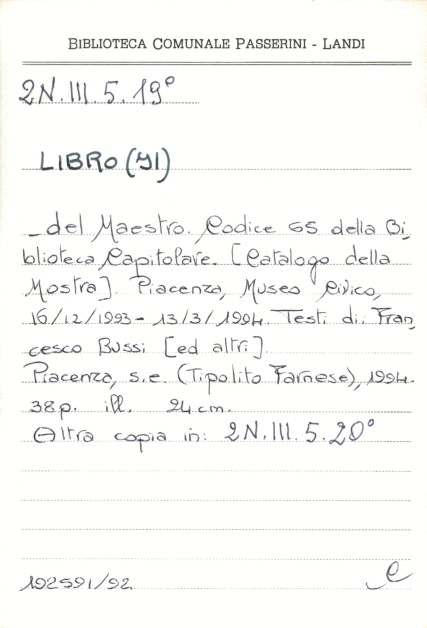 BIBLIOTECA COMUNALE PASSERINI - LANDI
2N.III.5.19°
LIBRO (Il)
_ del Maestro. Codice 65 della Bi_
blioteca Capitolare. [Catalogo della
Mostra]. Piacenza, Museo Civico,
16/12/1993 - 13/3/1994. Testi di Fran_
cesco Bussi [ed altri].
Piacenza, s.e. (Tipolito Farnese), 1994.
38 p. ill. 24 cm.
Altra copia in: 2N.III.5.20°
192591/92
e